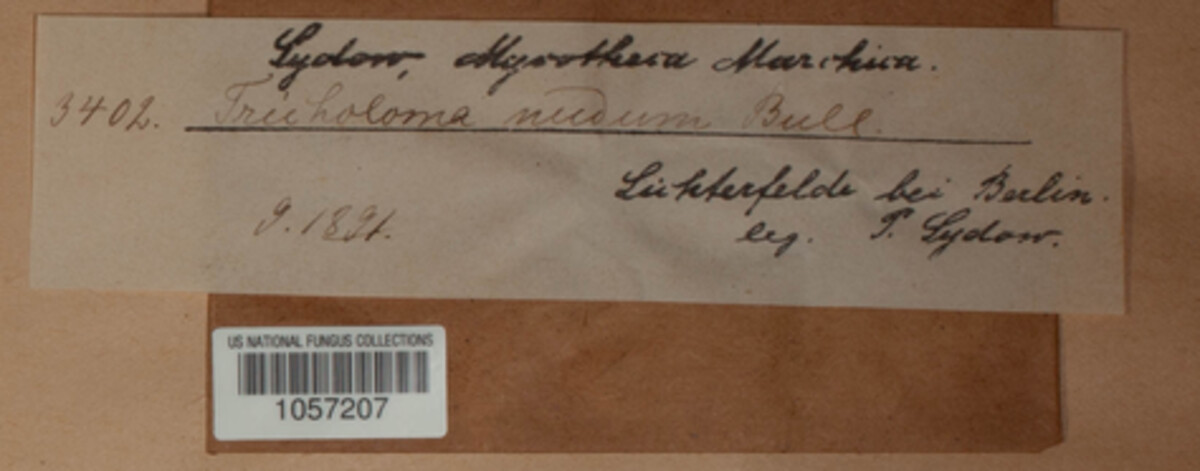 Sydow, Mycotheca Marchica.
3402. Tricholoma nudum Bull.
9. 1891. Lichterfelde bei Berlin.
leg. P. Sydow.
US NATIONAL FUNGUS COLLECTIONS
1057207